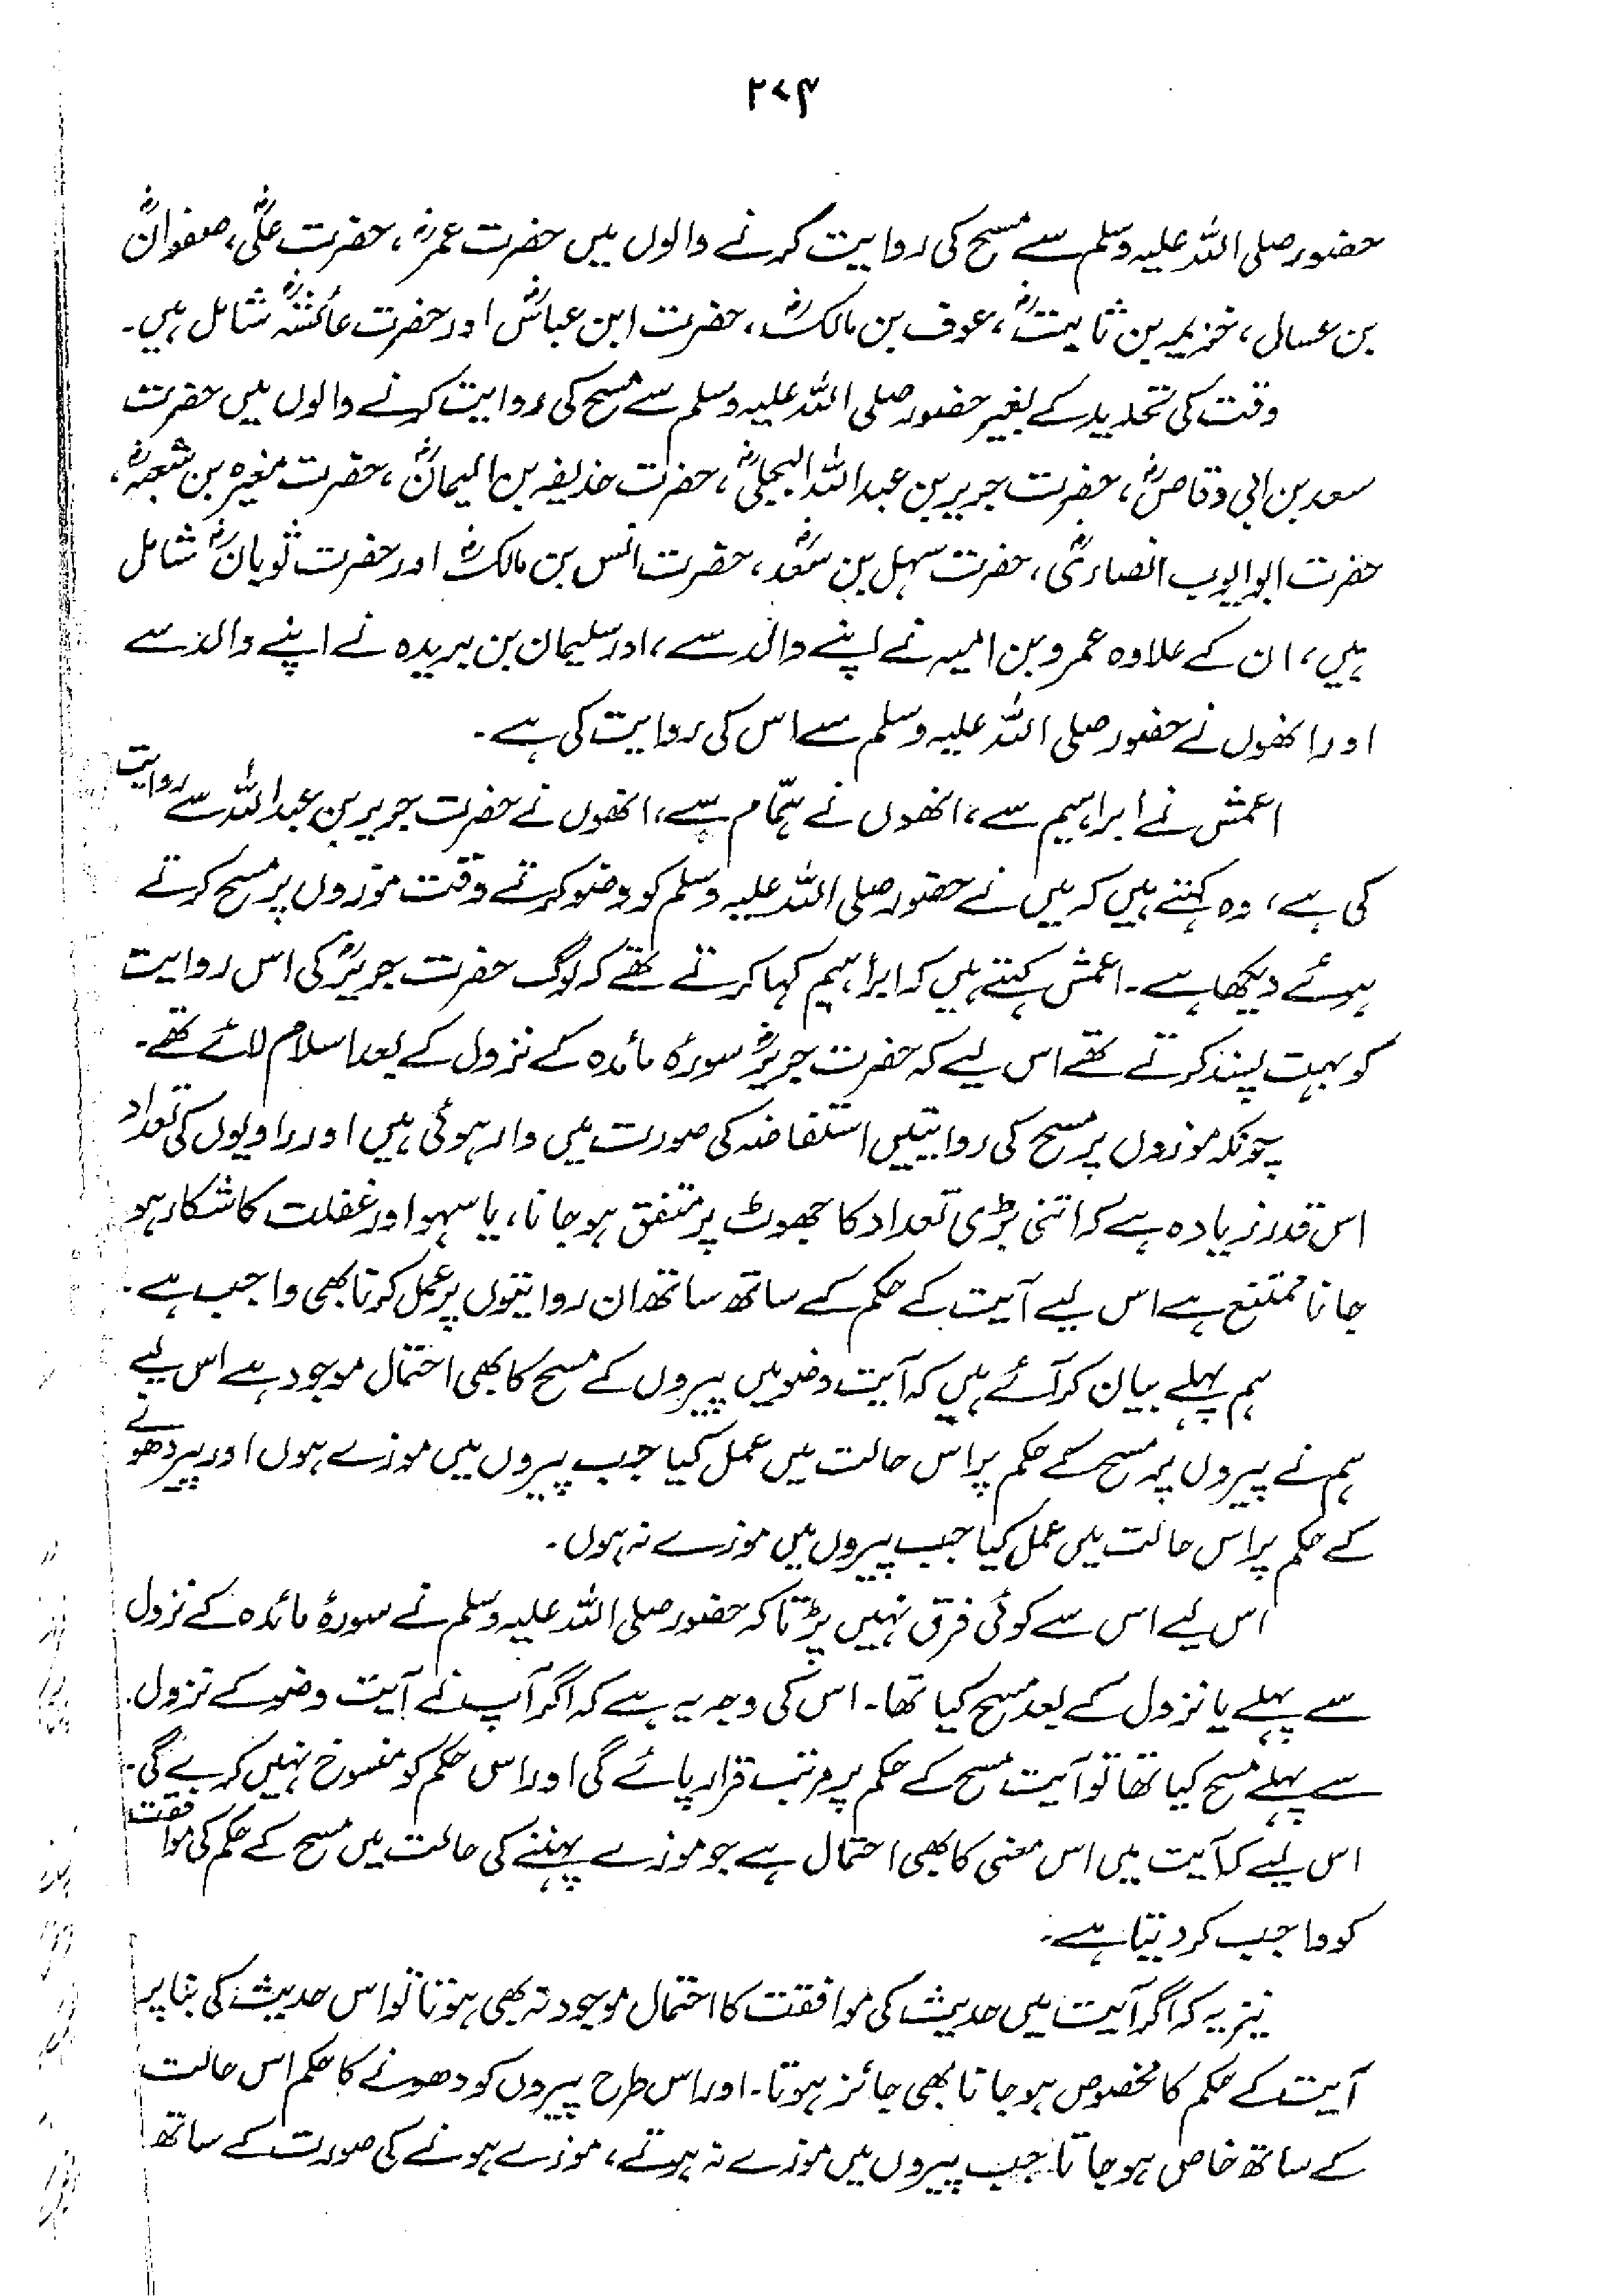 ۲۷۴
حضور صلی اللہ علیہ وسلم سے مسح کی روایت کرنے والوں میں حضرت عمرؓ، حضرت علیؓ، صفوانؓ
بن عسال، خزیمہ بن ثابتؓ، عوف بن مالکؓ، حضرت ابن عباسؓ اور حضرت عائشہؓ شامل ہیں۔
وقت کی تحدید کے بغیر حضور صلی اللہ علیہ وسلم سے مسح کی روایت کرنے والوں میں حضرت
سعد بن ابی وقاصؓ، حضرت جریر بن عبداللہ البجلیؓ، حضرت حذیفہ بن الیمانؓ، حضرت مغیرہ بن شعبہؓ،
حضرت ابو ایوب انصاریؓ، حضرت سہل بن سعدؓ، حضرت انس بن مالکؓ اور حضرت ثوبانؓ شامل
ہیں، ان کے علاوہ عمرو بن امیہ نے اپنے والد سے، اور سلیمان بن بریدہ نے اپنے والد سے
اور انھوں نے حضور صلی اللہ علیہ وسلم سے اس کی روایت کی ہے۔
اعمش نے ابراہیم سے، انھوں نے ہمّام سے، انھوں نے حضرت جریر بن عبداللہ سے روایت
کی ہے، وہ کہتے ہیں کہ میں نے حضور صلی اللہ علیہ وسلم کو وضو کرتے وقت موزوں پر مسح کرتے
ہوئے دیکھا ہے۔ اعمش کہتے ہیں کہ ابراہیم کہا کرتے تھے کہ لوگ حضرت جریرؓ کی اس روایت
کو بہت پسند کرتے تھے اس لیے کہ حضرت جریرؓ سورۂ مائدہ کے نزول کے بعد اسلام لائے تھے۔
چونکہ موزوں پر مسح کی روایتیں استفاضہ کی صورت میں وارد ہوئی ہیں اور راویوں کی تعداد
اس قدر زیادہ ہے کہ اتنی بڑی تعداد کا جھوٹ پر متفق ہو جانا، یا سہو اور غفلت کا شکار ہو
جانا ممتنع ہے اس لیے آیت کے حکم کے ساتھ ساتھ ان روایتوں پر عمل کرنا بھی واجب ہے۔
ہم پہلے بیان کر آئے ہیں کہ آیت وضو میں پیروں کے مسح کا بھی احتمال موجود ہے اس لیے
ہم نے پیروں پر مسح کے حکم پر اس حالت میں عمل کیا جب پیروں میں موزے ہوں اور پیر دھونے
کے حکم پر اس حالت میں عمل کیا جب پیروں میں موزے نہ ہوں۔
اس لیے اس سے کوئی فرق نہیں پڑتا کہ حضور صلی اللہ علیہ وسلم نے سورۂ مائدہ کے نزول
سے پہلے یا نزول کے بعد مسح کیا تھا۔ اس کی وجہ یہ ہے کہ اگر آپ نے آیت وضو کے نزول
سے پہلے مسح کیا تھا تو آیت مسح کے حکم پر مرتب قرار پائے گی اور اس حکم کو منسوخ نہیں کرے گی۔
اس لیے کہ آیت میں اس معنی کا بھی احتمال ہے جو موزے پہننے کی حالت میں مسح کے حکم کی موافقت
کو واجب کر دیتا ہے۔
نیز یہ کہ اگر آیت میں حدیث کی موافقت کا احتمال موجود نہ بھی ہوتا تو اس حدیث کی بنا پر
آیت کے حکم کا مخصوص ہو جانا بھی جائز ہوتا۔ اور اس طرح پیروں کو دھونے کا حکم اس حالت
کے ساتھ خاص ہو جاتا جب پیروں میں موزے نہ ہوتے، موزے ہونے کی صورت کے ساتھ